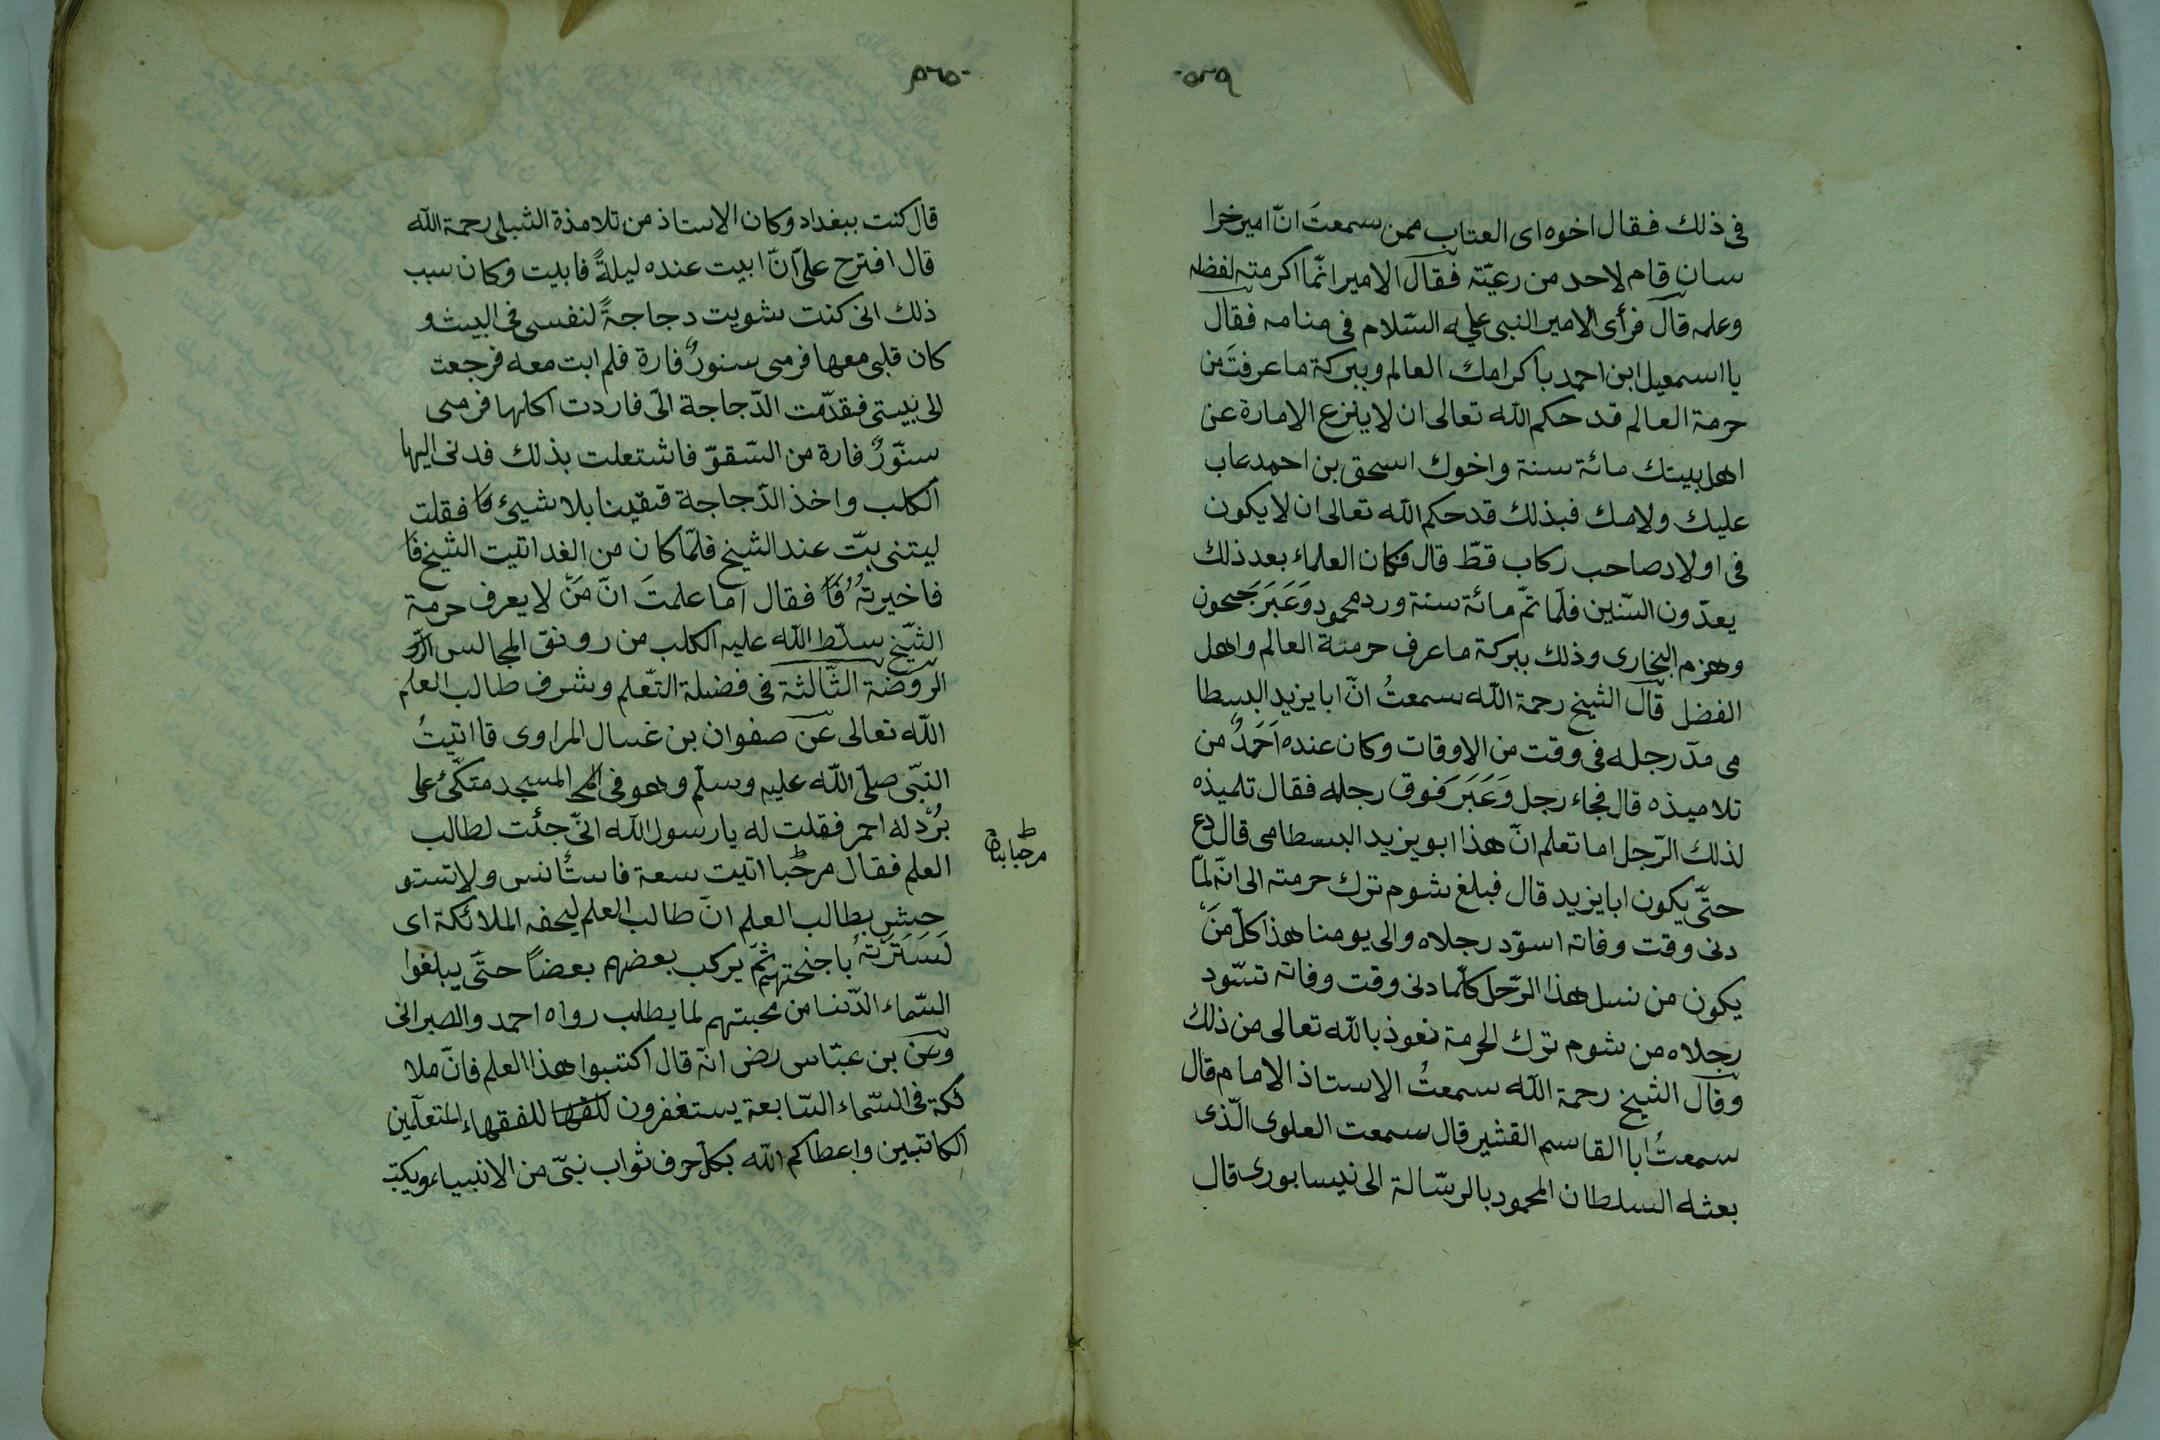 ٥٢٩
فى ذلك فقال اخوه اى العتاب ممن سمعتَ انّ امير خرا
سان قام لاحد من رعيّته فقال الامير انّما اكرمته لفظله
وعلمه قال فرأى الامير النبى عليه السّلام فى منامه فقال
يا اسمعيل ابن احمد باكرامك العالم وببركة ما عرفتَ من
حرمة العالم قد حكم الله تعالى ان لا ينزع الامارة عن
اهل بيتك مائة سنة واخوك اسحق بن احمد عاب
عليك ولامك فبذلك قد حكم الله تعالى ان لا يكون
فى اولاد صاحب ركاب قطّ قال فكان العلماء بعد ذلك
يعدّون السّنين فلمّا تمّ مائة سنة ورد محمود وَعَبَرَ جيحون
وهزم البخارى وذلك ببركة ما عرف حرمة العالم واهل
الفضل قال الشيخ رحمة الله سمعتُ انّ ابا يزيد البسطا
مى مدّ رجله فى وقت من الاوقات وكان عنده اَحَدٌ من
تلاميذه قال فجاء رجل وَعَبَرَ فوق رجله فقال تلميذه
لذلك الرّجل اما تعلم انّ هذا ابو يزيد البسطامى قال دع
حتّى يكون ابا يزيد قال فبلغ شوم ترك حرمته الى انّه لمّا
دنى وقت وفاته اسوّد رجلاه والى يومنا هذا كلّ مَنْ
يكون من نسل هذا الرّجل كلّما دنى وقت وفاته تسّود
رجلاه من شوم ترك الحرمة نعوذ بالله تعالى من ذلك
وقال الشيخ رحمة الله سمعتُ الاستاذ الامام قال
سمعتُ ابا القاسم القشير قال سمعت العلوى الّذى
بعثه السلطان المحمود بالرسّالة الى نيسابورى قال
٥٣٠
قال كنت ببغداد وكان الاستاذ من تلامذة الشبلى رحمة الله
قال افترح علىّ انّ ابيت عنده ليلةً فابيت وكان سبب
ذلك انى كنت شويت دجاجةً لنفسى فى البيت و
كان قلبى معها فرمى سنورٌ فارة فلم ابت معه فرجعت
الى بيتى فقدّمت الدّجاجة الىّ فاردت اكلها فرمى
سنّورٌ فارة من السّقوّ فاشتعلت بذلك فدنى اليها
الكلب واخذ الدّجاجة فبقينا بلا شيئ فقلت
ليتنى بتّ عند الشيخ فلمّا كان من الغد اتيت الشيخ
فاخيرتُهُ فقال اما علمتَ انّ مَنْ لا يعرف حرمة
الشّيخ سلّط الله عليه الكلب من رونق المجالس
الرّوضة الثّالثة فى فضيلة التّعلم وشرف طالب العلم
الله تعالى عن صفوان بن غسال المراوى قا اتيتُ
النبّى صلّى الله عليه وسلّم وهو فى المسجد متكّئ على
بُرْد له احمر فقلت له يا رسول الله انّى جئت لطالب
العلم فقال مرحَبا اتيت سعة فاستأنس ولا تستو
حيش بطالب العلم انّ طالب العلم ليحفه الملائكة اى
لَسَتَرَتْهُ باجنحتهم ثمّ يركب بعضهم بعضاً حتّى يبلغوا
السّماء الدّننا من محبتهم لما يطلب رواه احمد والصبرانى
وعن بن عبّاس رض انّه قال اكتبوا هذا العلم فانّ ملا
ئكة فى السّماء السّابعة يستغفرون للفقهاء المتعلّمين
الكاتبين واعطاكم الله بكلّ حرف ثواب نبىّ من الانبياء ويكتب